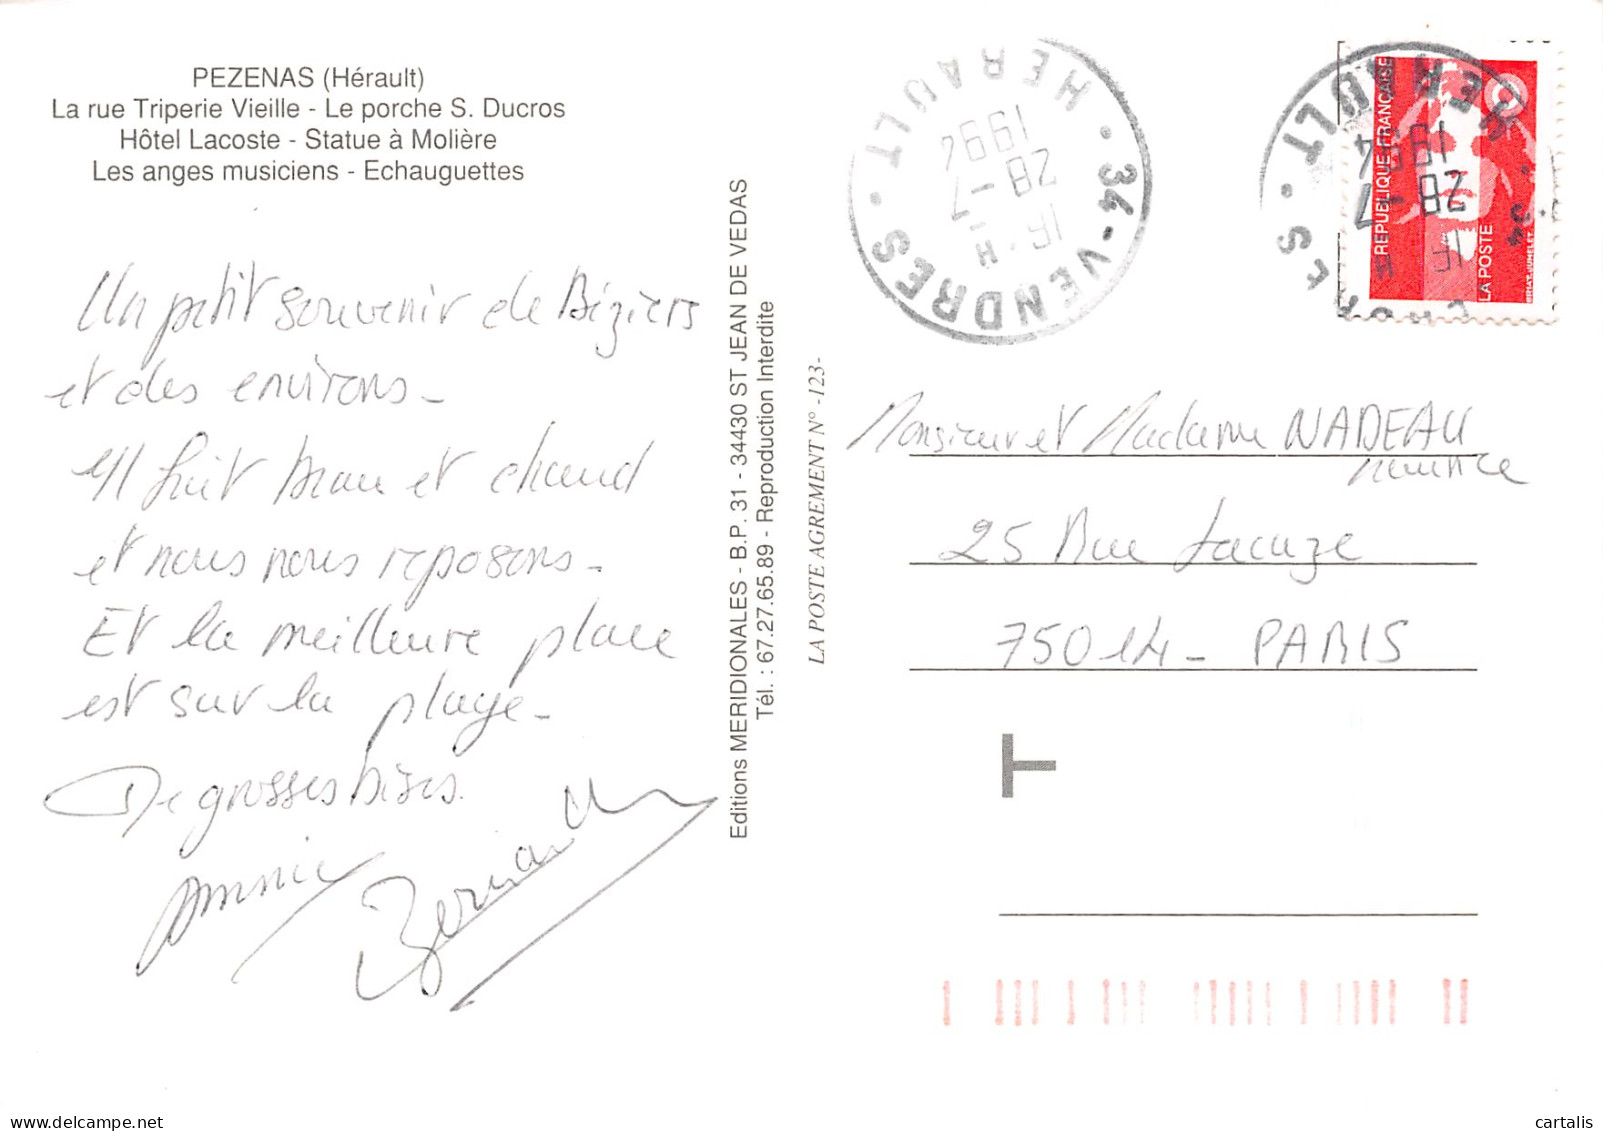 PEZENAS (Hérault)
La rue Triperie Vieille - Le porche S. Ducros
Hôtel Lacoste - Statue à Molière
Les anges musiciens - Echauguettes
Un petit souvenir de Béziers
et des environs_
Il fait beau et chaud
et nous nous reposons_
Et la meilleure place
est sur la plage_
De grosses bises.
Annie
Bernard
Editions MERIDIONALES - B.P. 31 - 34430 ST JEAN DE VEDAS
Tél. : 67.27.65.89 - Reproduction Interdite
LA POSTE AGREMENT N° -123-
34-VENDRES · HERAULT ·
16 H
28-7
1994
34 HERAULT ·
16 H
28-7
1994
REPUBLIQUE FRANÇAISE
LA POSTE
BRIAT-JUMELET
Monsieur et Madame NADEAU
Maurice
25 Rue Jacuze
75014 - PARIS
T
cartalis
www.delcampe.net